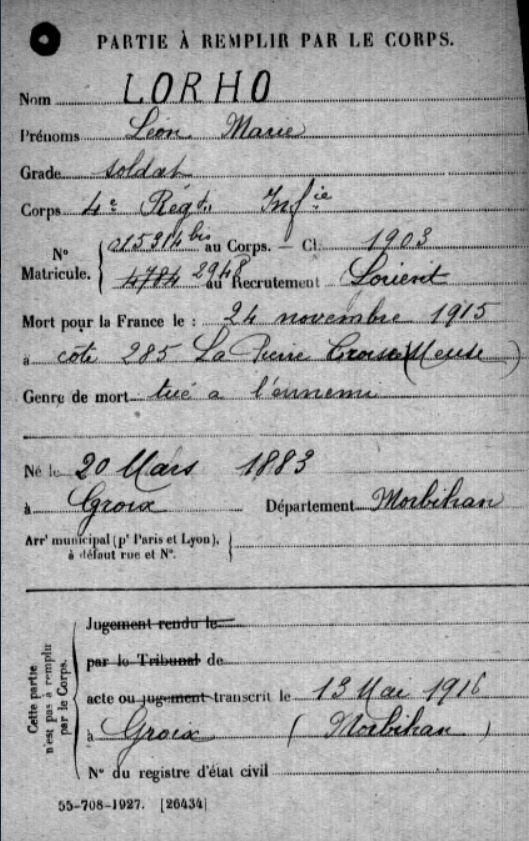 PARTIE À REMPLIR PAR LE CORPS.
Nom LORHO
Prénoms Léon Marie
Grade soldat
Corps 4e Régt. Infie
N° Matricule. 215314 bis au Corps. — Cl. 1903
4784 2948 au Recrutement Lorient
Mort pour la France le : 24 novembre 1915
à côte 285 La Pierre Croisée (Meuse)
Genre de mort tué a l'ennemi
Né le 20 Mars 1883
à Groix Département Morbihan
Arrt municipal (pr Paris et Lyon),
à défaut rue et N°.
Cette partie
n'est pas à remplir
par le Corps.
Jugement rendu le
par le Tribunal de
acte ou jugement transcrit le 13 Mai 1916
à Groix (Morbihan)
N° du registre d'état civil
55-708-1927. [26434]